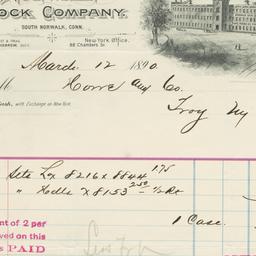 OCK COMPANY.
SOUTH NORWALK, CONN.
New York Office,
88 Chambers St.
March 12 1890
M Howe and Co.
Cash, with Exchange on New York.
Troy Ny
Sets Lx 8216 x 8844 1.75
" Hdls x 8153 2.50 - 1/2
1 Case.
nt of 2 per
wed on this
s PAID